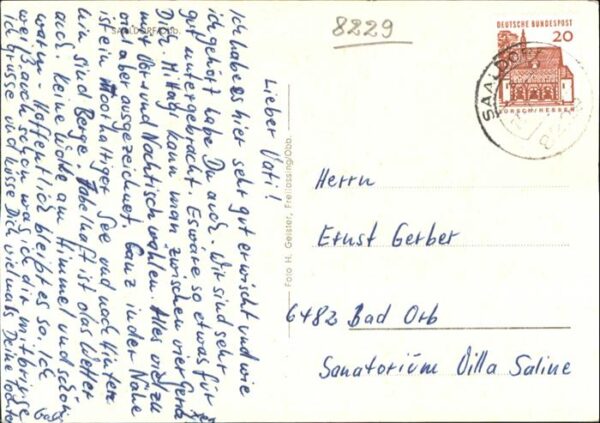 SAALDORF/Obb.
Lieber Vati!
Ich habe es hier sehr gut erwischt und wie
ich gehört habe Du auch. Wir sind sehr
gut untergebracht. Es wäre so etwas für
Dich. Mittags kann man zwischen vier Gerich
mit Vor- und Nachtisch wählen. Alles viel zu
und aber ausgezeichnet. Ganz in der Nähe
ist ein Moorhaltiger See und nach hinten
hin sind Berge. Fabelhaft ist das Wetter
auch. Keine Wolke am Himmel und schön
warm. Hoffentlich bleibt es so. Ich
weiß auch schon was ich dir mitbringe
Ich grüsse und küsse Dich vielmals Deine Tochter
Foto H. Geister, Freilassing/Oba.
8229
DEUTSCHE BUNDESPOST
20
LORSCH/HESSEN
SAALDORF
Herrn
Ernst Gerber
6482 Bad Orb
Sanatorium Villa Saline